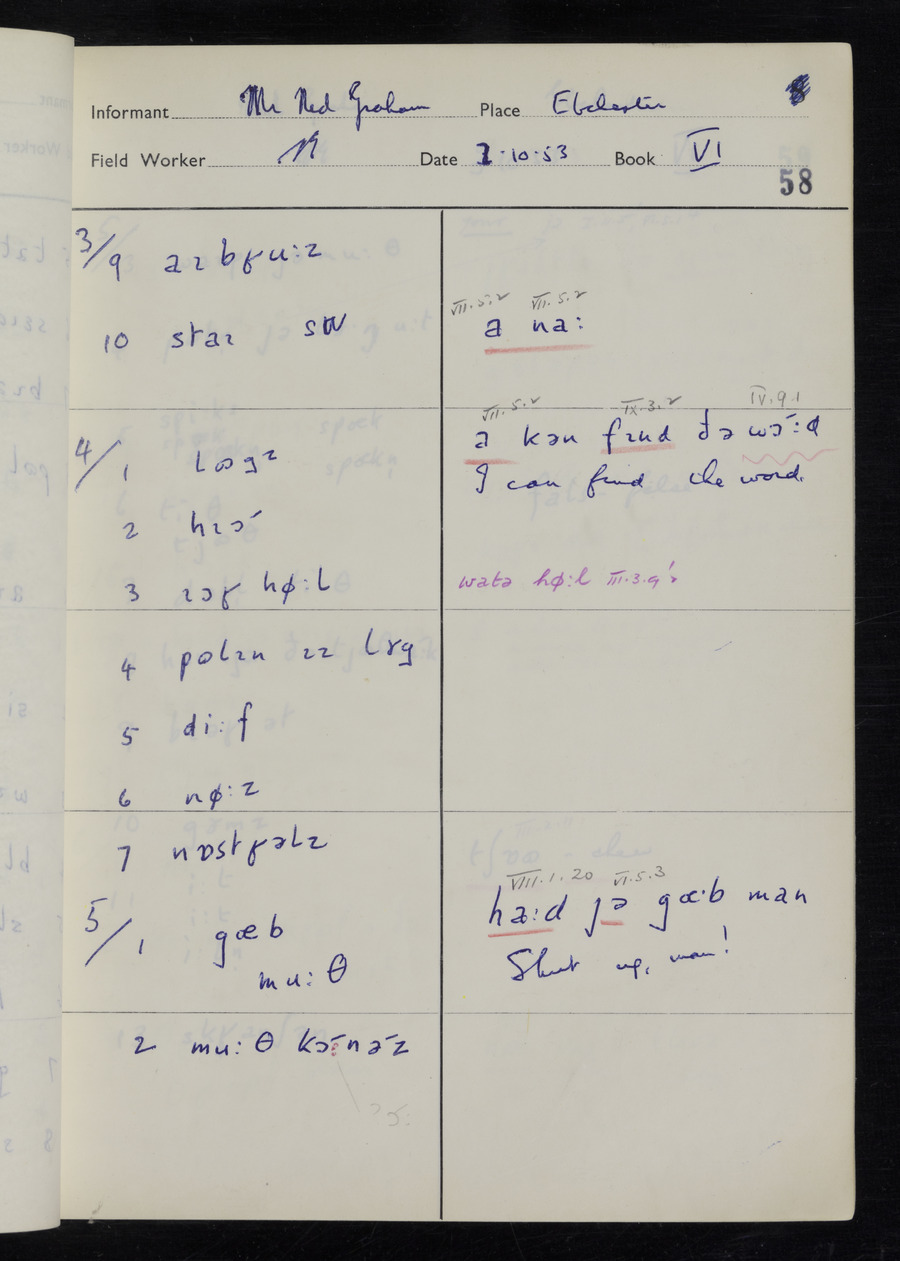 Informant Mr Ned Graham Place Ebchester 8
Field Worker Date 7.10.53 Book VI
58
3/9 aɪbɾuːz
10 staɪ
VII.5.2 VII.5.2
a naː
4/1 lʊgz
VII.5.2 IX.3.2 IV.9.1
a kən fɪnd ðə wɔːd
I can find the word.
2 hɪə
3 ɪəɾ høːl
watə høːl III.3.9
4 pʊlɪn ɪz lɤg
5 diːf
6 nøːz
7 nɒstɾəlz
5/1 gæb
muːθ
VIII.1.20 VI.5.3
haːd jə gæːb man
Shut up, man!
2 muːθ kɔːnəz